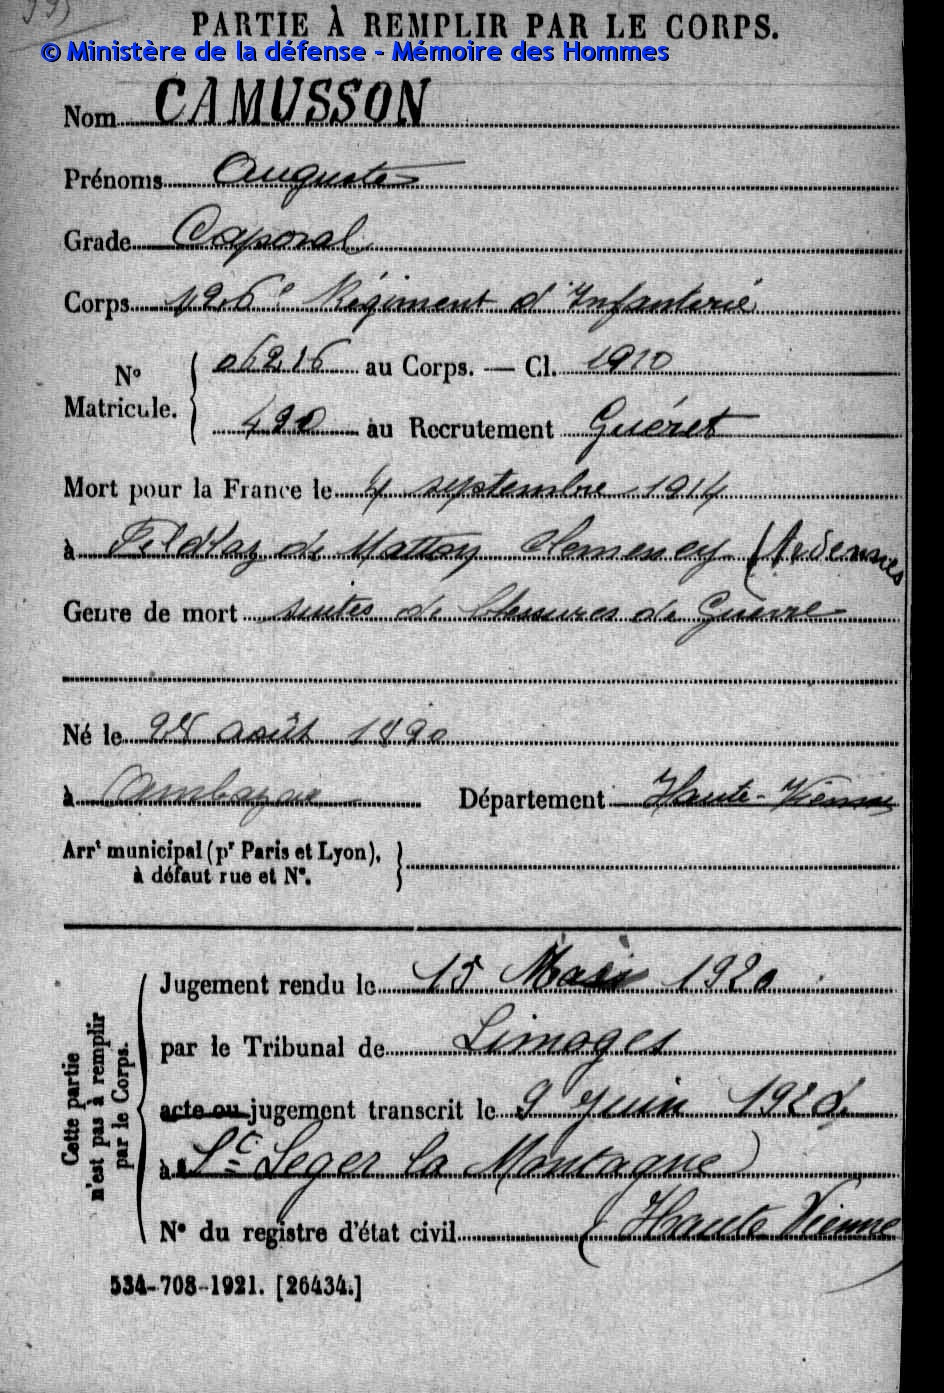 PARTIE À REMPLIR PAR LE CORPS.
© Ministère de la défense - Mémoire des Hommes
Nom CAMUSSON
Prénoms Auguste
Grade Caporal
Corps 126e Régiment d'Infanterie
No Matricule. 06216 au Corps. — Cl. 1910
490 au Recrutement Guéret
Mort pour la France le 4 septembre 1914
à Feldlaz de Matton Clemency (Ardennes
Genre de mort suites de blessures de Guerre
Né le 28 août 1890
à Ambazac Département Haute-Vienne
Arrt municipal (pr Paris et Lyon),
à défaut rue et No.
Cette partie n'est pas à remplir par le Corps.
Jugement rendu le 15 Mars 1920
par le Tribunal de Limoges
acte ou jugement transcrit le 9 juin 1920
à St Leger la Montagne
No du registre d'état civil (Haute Vienne)
534-708-1921. [26434.]